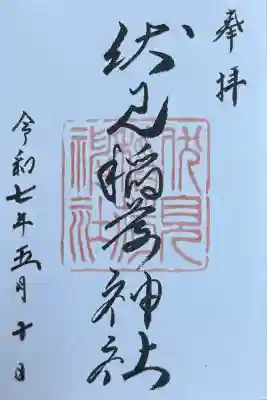 奉拝
伏見稲荷神社
令和七年五月十日
伏見稲荷神社